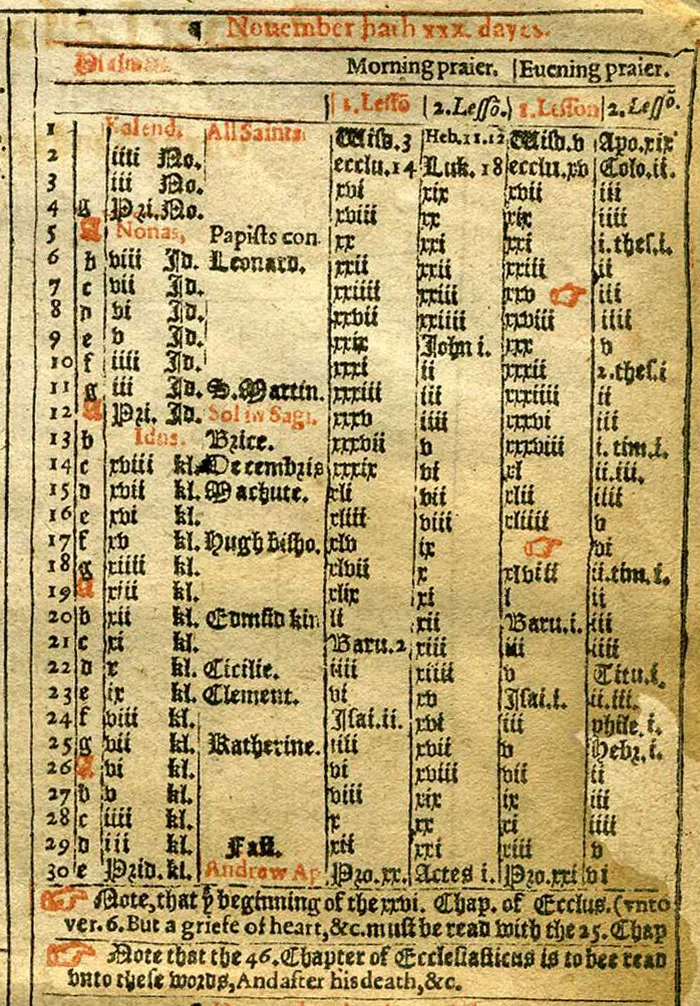 ¶ Nouember hath xxx. dayes.
Psalmes Morning praier. | Euening praier.
1. Lessō | 2. Lessō. | 1. Lesson | 2. Lessō.
1 Kalend. All Saints Wisd. 3 Heb. 11. 12 Wisd. v Apo. xix
2 iiii No. ecclu. 14 Luk. 18 ecclu. xv Colo. ii.
3 iii No. xvi xix xvii iii
4 g Pri. No. xviii xx xix iiii
5 A Nonas, Papists con. xx xxi xxi i. thes. i.
6 b viii Id. Leonard. xxii xxii xxiii ii
7 c vii Id. xxiiii xxiii xxv ☞ iii
8 d vi Id. xxvii xxiiii xxviii iiii
9 e v Id. xxix John i. xxx v
10 f iiii Id. xxxi ii xxxii 2. thes. i
11 g iii Id. S. Martin. xxxiii iii xxxiiii ii
12 A Pri. Id. Sol in Sagi. xxxv iiii xxxvi iii
13 b Idus. Brice. xxxvii v xxxviii i. tim. i.
14 c xviii kl. Decembris xxxix vi xl ii. iii.
15 d xvii kl. Machute. xli vii xlii iiii
16 e xvi kl. xliii viii xliiii v
17 f xv kl. Hugh bisho. xlv ix ☞ vi
18 g xiiii kl. xlvii x xlviii ii. tim. i.
19 A xiii kl. xlix xi l ii
20 b xii kl. Edmūd kin li xii Baru. i. iii
21 c xi kl. Baru. 2 xiii iii iiii
22 d x kl. Cicilie. iiii xiiii v Titu. i.
23 e ix kl. Clement. vi xv Isai. i. ii. iii.
24 f viii kl. Isai. ii. xvi iii phile. i.
25 g vii kl. Katherine. iiii xvii v Hebr. i.
26 A vi kl. vi xviii vii ii
27 b v kl. viii xix ix iii
28 c iiii kl. x xx xi iiii
29 d iii kl. Fast. xii xxi xiii v
30 e Prid. kl. Andrew Ap Pro. xx. Actes i. Pro. xxi vi
☞ Note, that yͤ beginning of the xxvi. Chap. of Ecclus. (vnto
ver. 6. But a griefe of heart, &c. must be read with the 25. Chap
☞ Note that the 46. Chapter of Ecclesiasticus is to bee read
vnto these words, And after his death, &c.